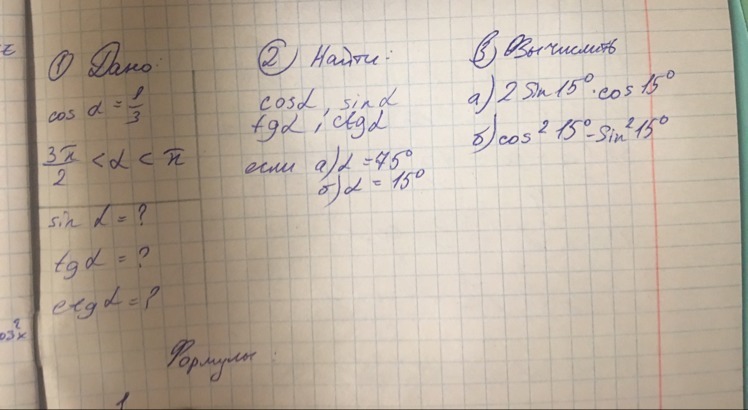 ① Дано:
cos α = 1/3
3π/2 < α < π
sin α = ?
tg α = ?
ctg α = ?
② Найти:
cosα, sinα
tgα, ctgα
если а) α = 75°
б) α = 15°
③ Вычислить
а) 2 Sin 15° · cos 15°
б) cos² 15° - Sin² 15°
Формулы: